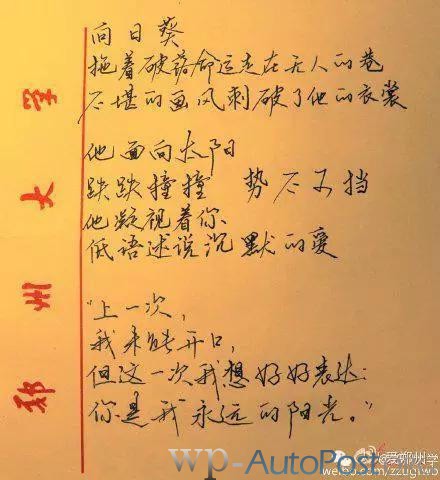 向日葵
拖着破落命运走在无人的巷
不堪的画风刺破了他的衣裳
他面向太阳
跌跌撞撞 势不可挡
他凝视着你
低语述说沉默的爱
“上一次,
我未能开口,
但这一次我想好好表达:
你是我永远的阳光。”
郑州大学
wp-AutoPost
@爱郑州学
weibo.com/zzugwb